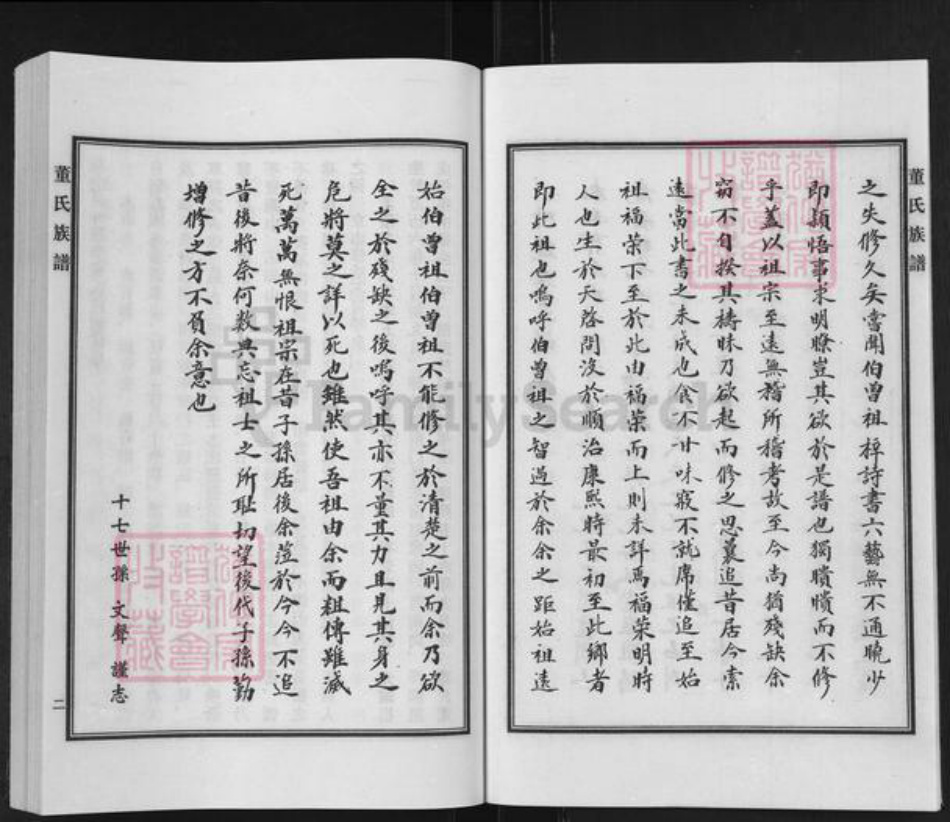 董氏族譜
之失修久矣嘗聞伯曾祖梓詩書六藝無不通曉少
即穎悟事求明瞭豈其欲於是譜也獨瞶瞶而不修
乎蓋以祖宗至遠無稽所稽考故至今尚猶殘缺余
竊不自揆其檮昧乃欲起而修之思襄追昔居今索
遠當此書之未成也食不甘味寢不就席僅追至始
祖福荣下至於此由福荣而上則未詳焉福荣明時
人也生於天啓問沒於順治康熙時最初至此鄉者
即此祖也嗚呼伯曾祖之智過於余余之距始祖遠
始伯曾祖伯曾祖不能修之於清楚之前而余乃欲
全之於殘缺之後嗚呼其亦不量其力且見其身之
危將莫之詳以死也雖然使吾祖由余而粗傳雖滅
死萬萬無恨祖宗在昔子孫居後余蒞於今今不追
昔後將奈何数典忘祖士之所耻切望後代子孫勤
增修之方不負余意也
十七世孫 文聲 謹志
董氏族譜
二
FamilySearch